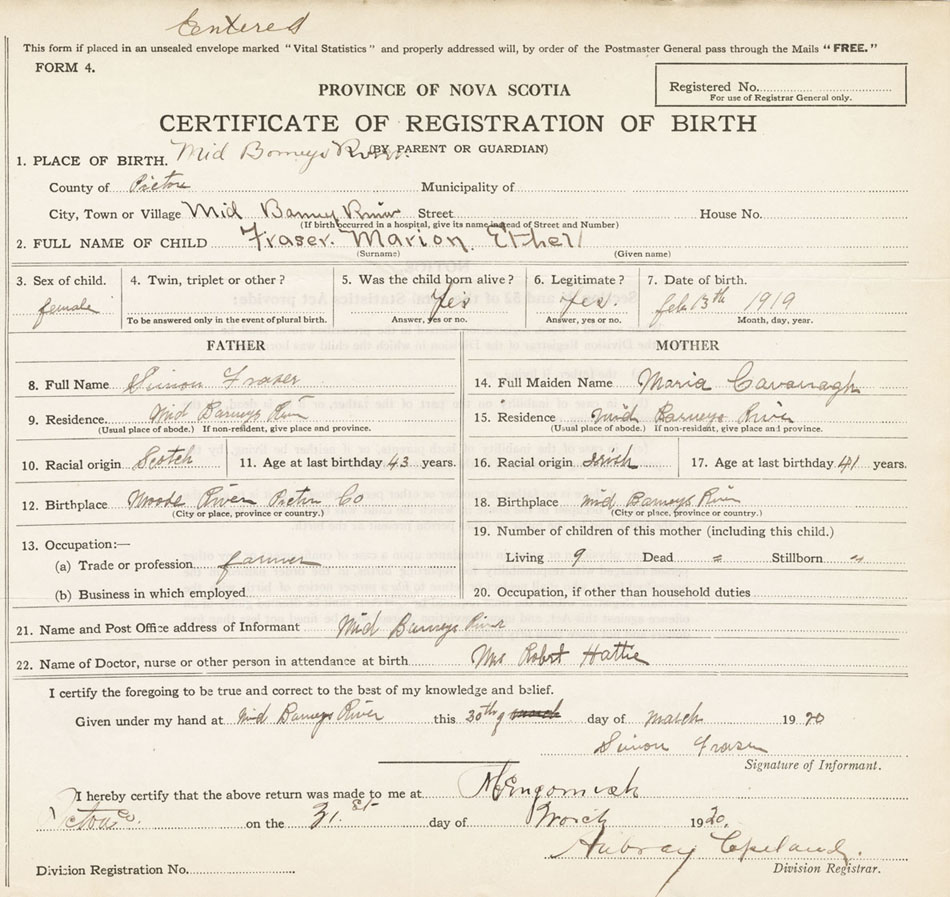 Entered
This form if placed in an unsealed envelope marked "Vital Statistics" and properly addressed will, by order of the Postmaster General pass through the Mails "FREE."
FORM 4.
Registered No.
For use of Registrar General only.
PROVINCE OF NOVA SCOTIA
CERTIFICATE OF REGISTRATION OF BIRTH
(BY PARENT OR GUARDIAN)
1. PLACE OF BIRTH. Mid Barneys River
County of Pictou Municipality of
City, Town or Village Mid Barney River Street House No.
(If birth occurred in a hospital, give its name instead of Street and Number)
2. FULL NAME OF CHILD Fraser. Marion Ethel
(Surname) (Given name)
3. Sex of child. 4. Twin, triplet or other? 5. Was the child born alive? 6. Legitimate? 7. Date of birth.
female Yes Yes. Feb 13th 1919
To be answered only in the event of plural birth. Answer, yes or no. Answer, yes or no. Month, day, year.
FATHER
8. Full Name Simon Fraser
9. Residence Mid Barneys River
(Usual place of abode.) If non-resident, give place and province.
10. Racial origin Scotch 11. Age at last birthday 43 years.
12. Birthplace River Pictou Co
(City or place, province or country.)
13. Occupation:—
(a) Trade or profession farmer
(b) Business in which employed
MOTHER
14. Full Maiden Name Maria Cavanagh
15. Residence Mid Barneys River
(Usual place of abode.) If non-resident, give place and province.
16. Racial origin Irish 17. Age at last birthday 41 years.
18. Birthplace Mid Barneys River
(City or place, province or country.)
19. Number of children of this mother (including this child.)
Living 9 Dead Stillborn
20. Occupation, if other than household duties
21. Name and Post Office address of Informant Mid Barneys River
22. Name of Doctor, nurse or other person in attendance at birth Mrs Robert Hattie
I certify the foregoing to be true and correct to the best of my knowledge and belief.
Given under my hand at Mid Barneys River this 30th day of March 1920
Simon Fraser
Signature of Informant.
I hereby certify that the above return was made to me at Merigomish
Pictou Co. on the 31st day of March 1920.
Aubray Copeland.
Division Registration No. Division Registrar.